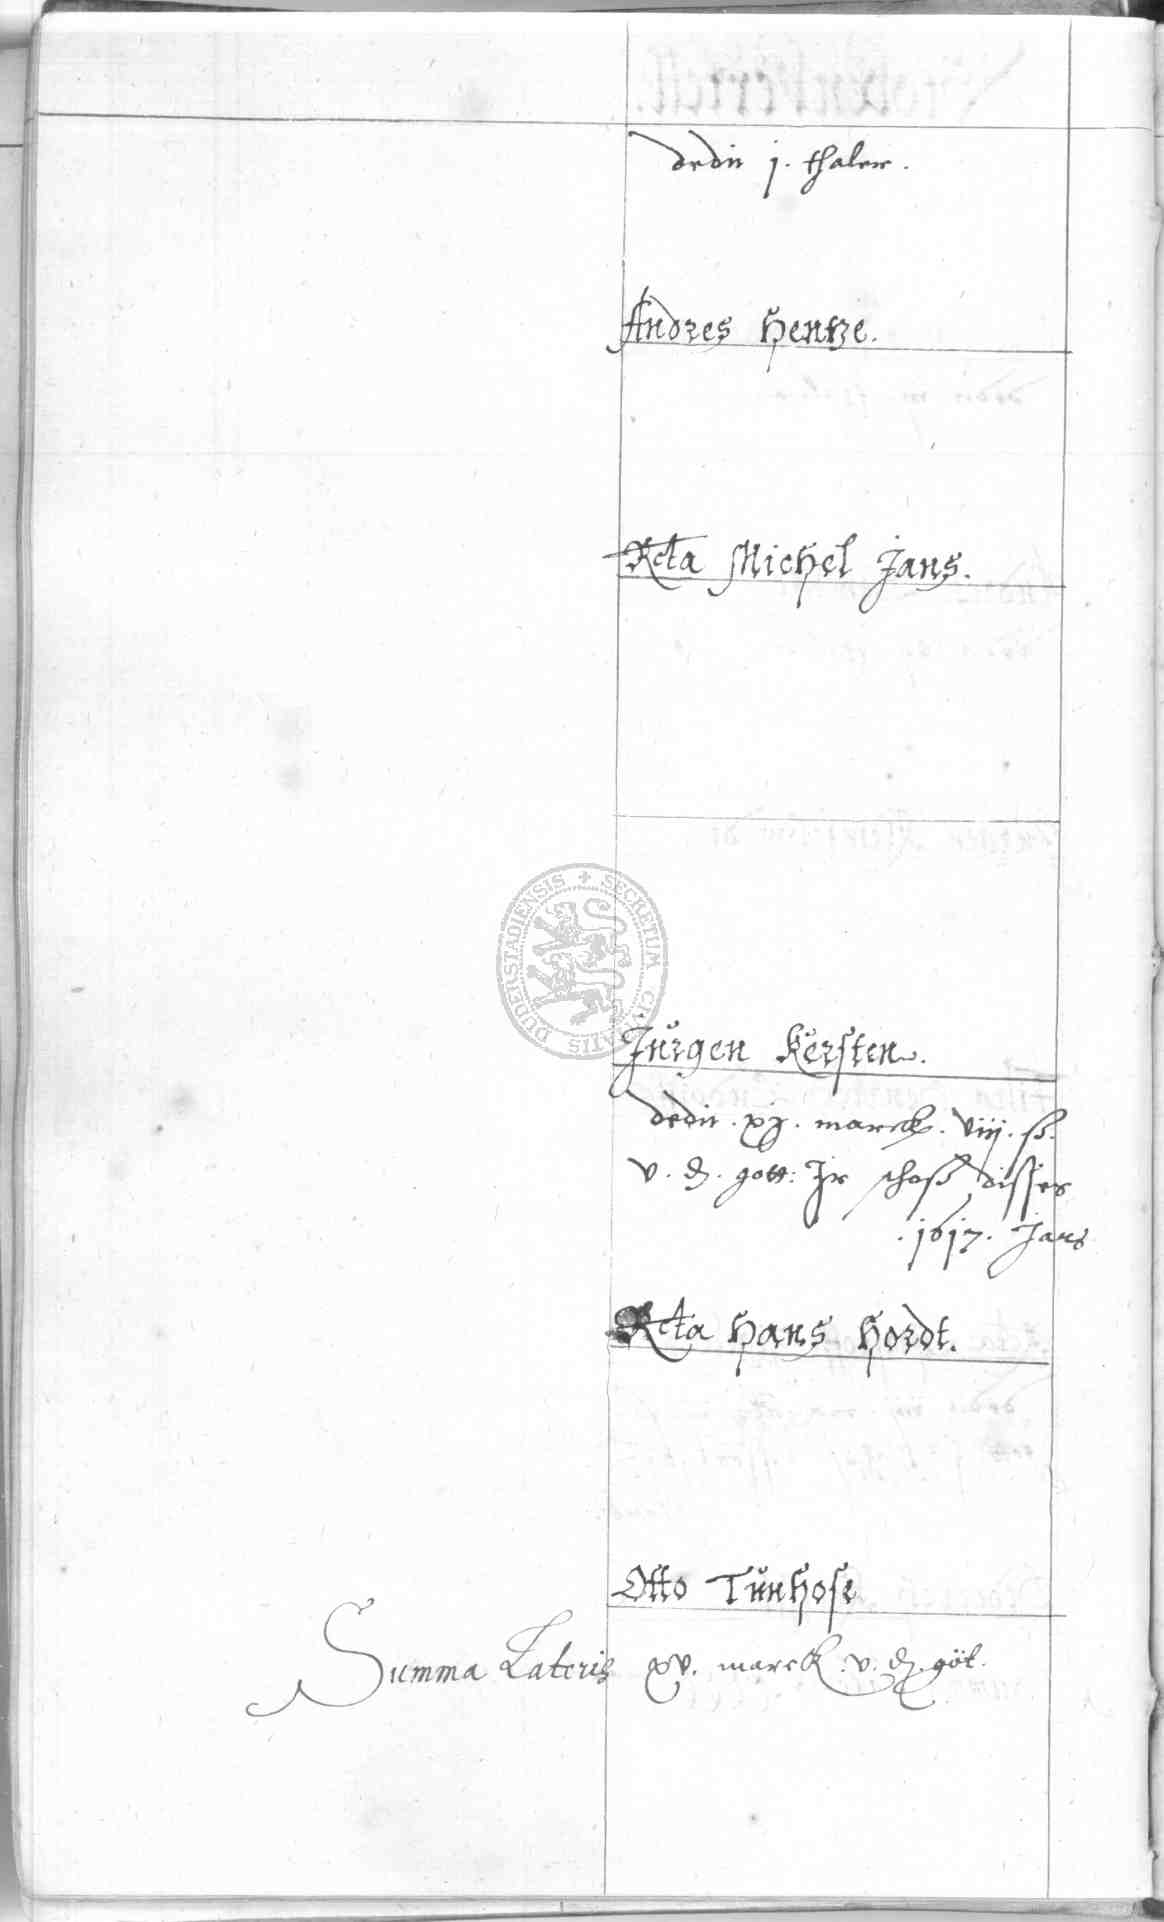 dedit j. thaler.
Andres Hentze.
Rcta Michel Jans.
SECRETUM CIVITATIS DUDERSTADIENSIS
Jürgen Kersten.
dedit. xj. marck. viij. ß.
v. ₰. gott: Jr schoß disses
.1617. Jars
Rcta Hans Hordt.
Otto Tünhose
Summa Lateris xv. marck. v. ₰. göt.